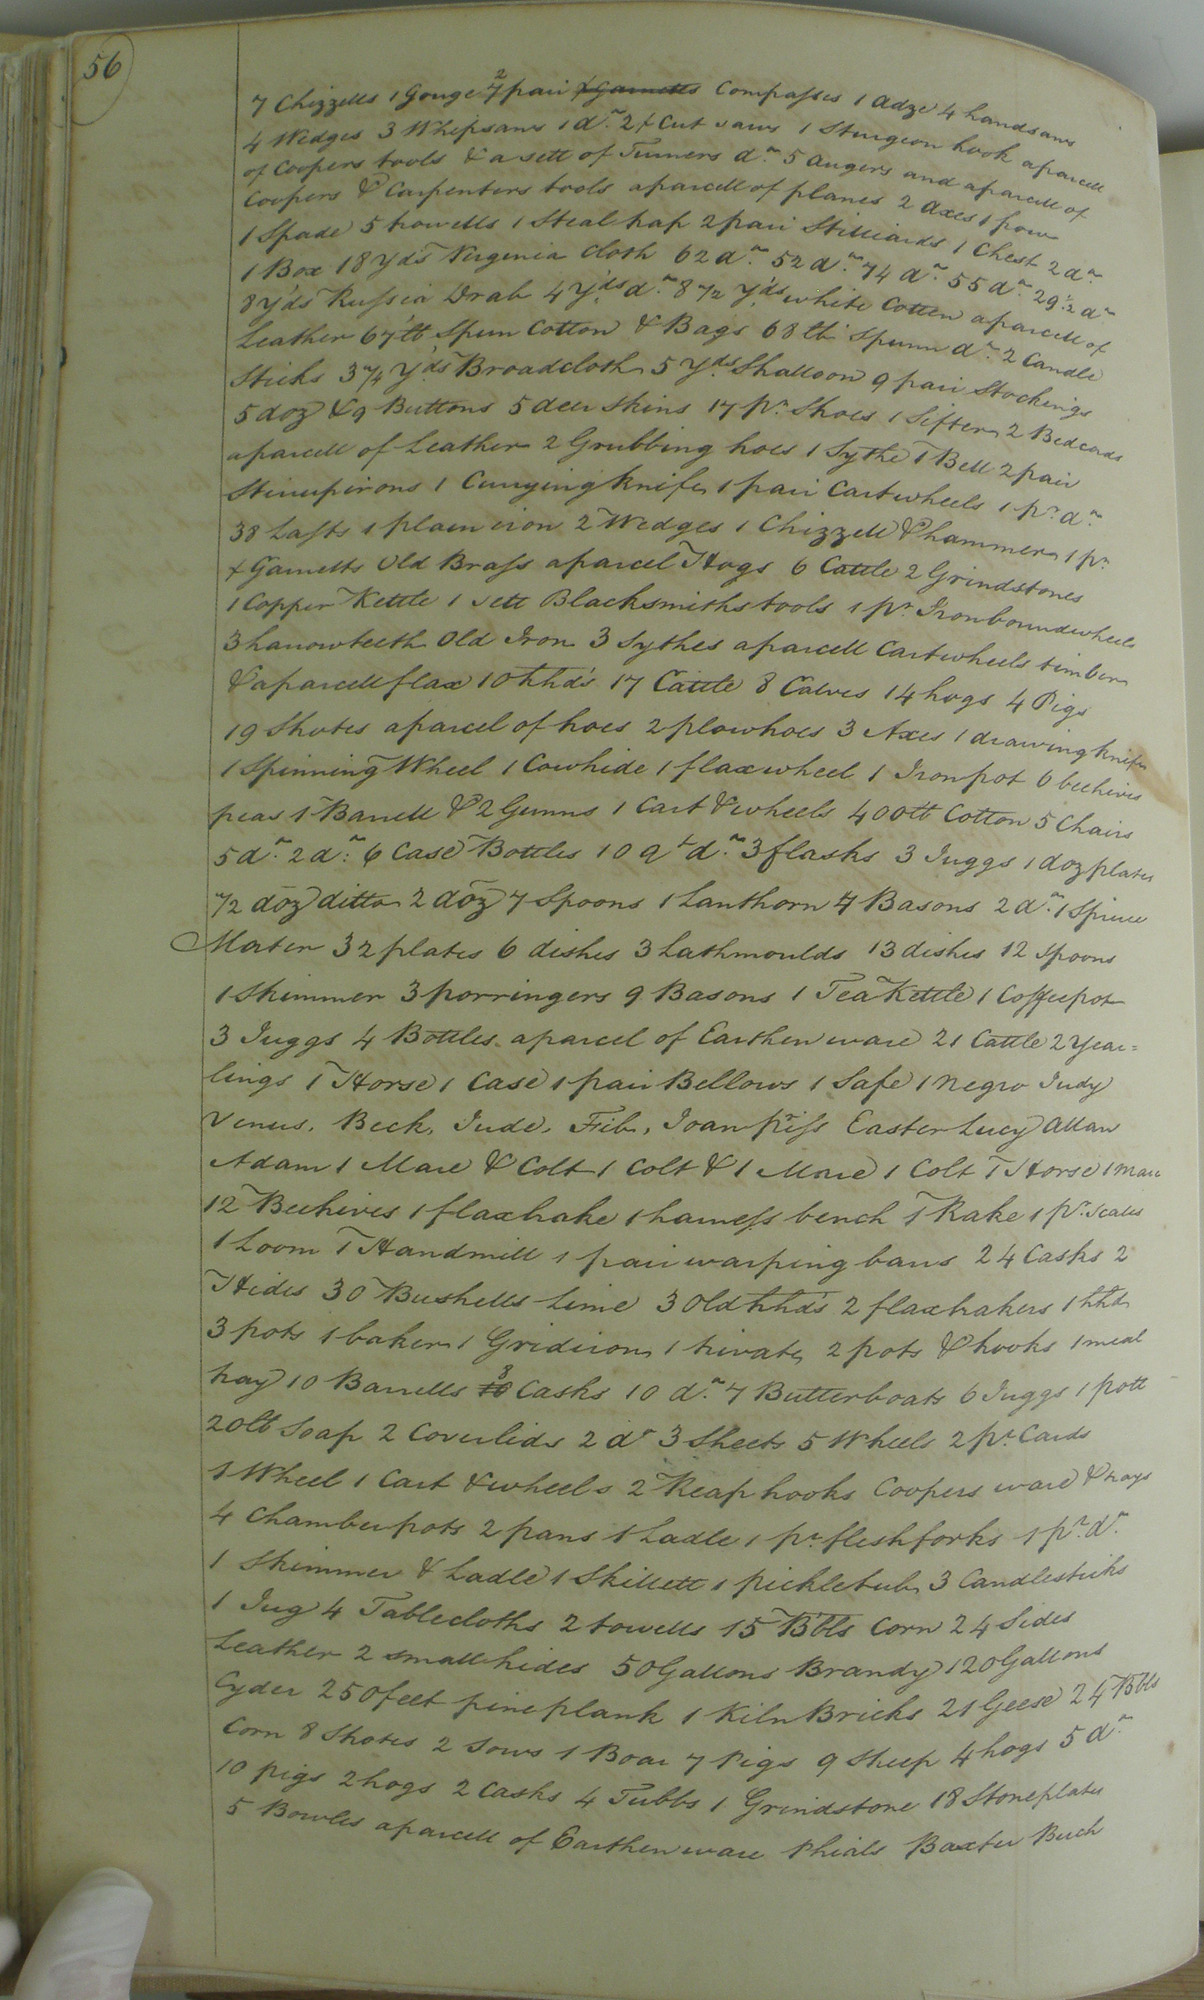 56
7 Chizzells 1 Gouge 2 pair Compasses 1 adze 4 handsaws
4 Wedges 3 Whipsaws 1 do. 2 X Cut saws 1 Sturgeon hook aparcell
of Coopers tools & a sett of Turners do. 5 augers and aparcell of
Coopers & Carpenters tools aparcell of planes 2 axes 1 frow
1 Spade 5 trowells 1 Steal trap 2 pair Stilliards 1 Chest 2 do.
1 Box 18 Yds Virginia Cloth 62 do. 52 do. 74 do. 55 do. 29 1/2 do.
8 Yds Russia Drab 4 Yds do. 8 1/2 Yds white Cotton aparcell of
Leather 67 lb Spun Cotton & Bags 68 lb Spunn do. 2 Candle
Sticks 3 3/4 Yds Broadcloth 5 Yds Shalloon 9 pair Stockings
5 doz & 9 Buttons 5 deer Skins 17 pr. Shoes 1 Sifter 2 Bedcords
aparcell of Leather 2 Grubbing hoes 1 Sythe 1 Bell 2 pair
Stirrupirons 1 Currying knife 1 pair Cartwheels 1 pr. do.
38 Lasts 1 plain iron 2 Wedges 1 Chizzell & hammer 1 pr.
X Garnetts Old Brass aparcel Hogs 6 Cattle 2 Grindstones
1 Copper Kettle 1 sett Blacksmiths tools 1 pr. Ironboundwheels
3 harrowteeth Old Iron 3 Sythes aparcell Cartwheels timber
& aparcell flax 10 hhds 17 Cattle 8 Calves 14 hogs 4 Pigs
19 Shotes aparcel of hoes 2 plowhoes 3 Axes 1 drawing knife
1 Spinning Wheel 1 Cowhide 1 flaxwheel 1 Ironpot 6 beehives
peas 1 Barrell & 2 Gunns 1 Cart & wheels 400 lb Cotton 5 Chairs
5 do. 2 do. 6 Case Bottles 10 qt do. 3 flasks 3 Juggs 1 doz plates
1/2 doz ditto 2 doz 7 Spoons 1 Lanthorn 4 Basons 2 do. 1 Spice
Morter 32 plates 6 dishes 3 Lathmoulds 13 dishes 12 Spoons
1 Skimmer 3 porringers 9 Basons 1 Tea Kettle 1 Coffeepot
3 Juggs 4 Bottles aparcel of Earthen ware 21 Cattle 2 Year=
lings 1 Horse 1 Case 1 pair Bellows 1 Safe 1 negro Judy
Venus, Beck, Jude, Fib, Joan priss Easter Lucy Allan
Adam 1 Mare & Colt 1 Colt & 1 Mare 1 Colt 1 Horse 1 mare
12 Beehives 1 flaxbrake 1 harness bench 1 Rake 1 pr. Scales
1 Loom 1 Handmill 1 pair warping bars 24 Casks 2
Hides 30 Bushells Lime 3 Old hhds 2 flaxbrakers 1 hhd
3 pots 1 baker 1 Gridiron 1 trivate 2 pots & hooks 1 meal
tray 10 Barrells 8 Casks 10 do. 7 Butterboats 6 Juggs 1 pott
20 lb Soap 2 Coverlids 2 do 3 Sheets 5 Wheels 2 pr. Cards
1 Wheel 1 Cart & wheels 2 Reap hooks Coopers ware & trays
4 Chamberpots 2 pans 1 Ladle 1 pr. fleshforks 1 pr. do.
1 Skimmer & Ladle 1 Skillett 1 pickletub 3 Candlesticks
1 Jug 4 Tablecloths 2 towells 15 Bbls Corn 24 Sides
Leather 2 small hides 50 Gallons Brandy 120 Gallons
Cyder 250 feet pine plank 1 Kiln Bricks 21 Geese 24 Bbls
Corn 8 Shotes 2 Sows 1 Boar 7 Pigs 9 Sheep 4 hogs 5 do.
10 pigs 2 hogs 2 Casks 4 Tubbs 1 Grindstone 18 Stoneplates
5 Bowles aparcell of Earthenware Phials Baxter Buck